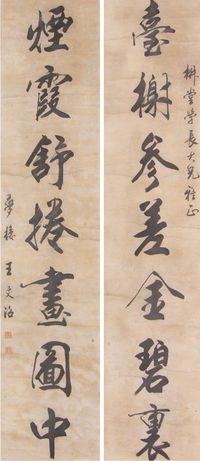 樹堂學長大兄雅正
臺榭參差金碧裏
煙霞舒捲畫圖中
夢樓王文治